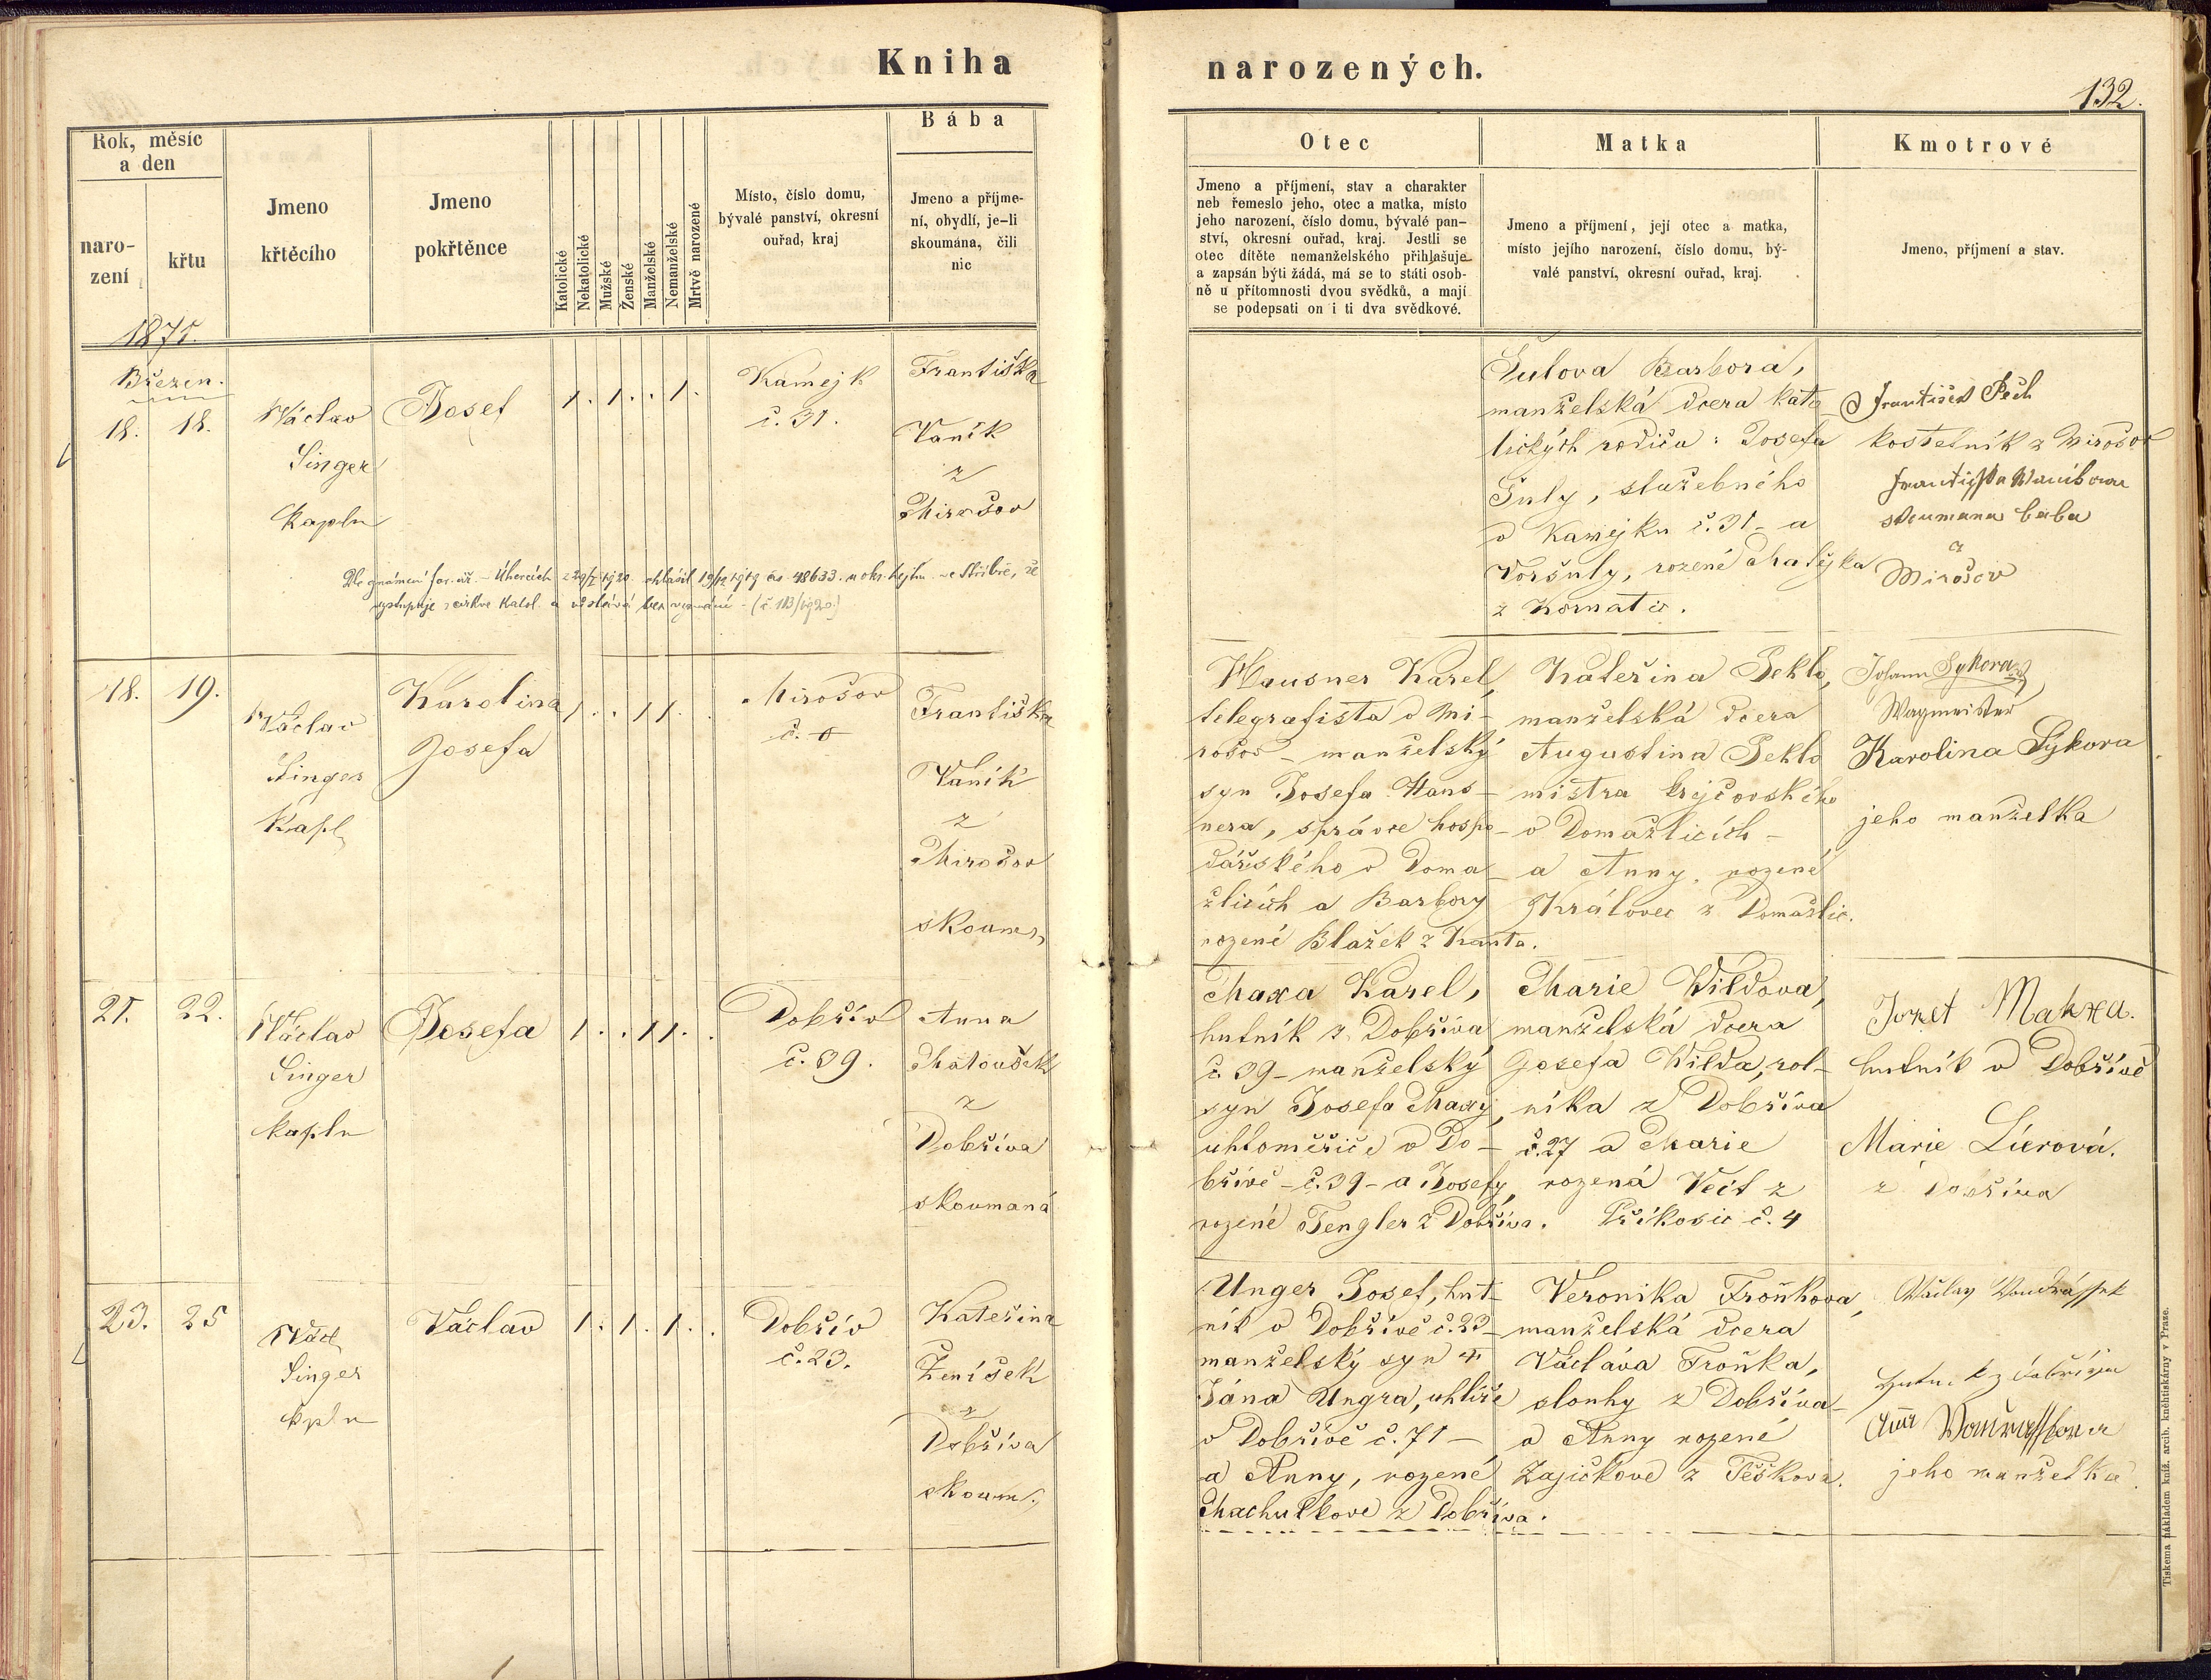 Kniha
narozených.
132.
Rok, měsíc
a den
naro-
zení
křtu
Jmeno
křtěcího
Jmeno
pokřtěnce
Katolické
Nekatolické
Mužské
Ženské
Manželské
Nemanželské
Mrtvě narozené
Místo, číslo domu,
bývalé panství, okresní
ouřad, kraj
Bába
Jmeno a příjme-
ní, obydlí, je-li
skoumána, čili
nic
Otec
Jmeno a příjmení, stav a charakter
neb řemeslo jeho, otec a matka, místo
jeho narození, číslo domu, bývalé pan-
ství, okresní ouřad, kraj. Jestli se
otec dítěte nemanželského přihlašuje
a zapsán býti žádá, má se to státi osob-
ně u přítomnosti dvou svědků, a mají
se podepsati on i ti dva svědkové.
Matka
Jmeno a příjmení, její otec a matka,
místo jejího narození, číslo domu, bý-
valé panství, okresní ouřad, kraj.
Kmotrové
Jmeno, příjmení a stav.
1875.
Březen.
18. 18.
Václav
Singer
Kapln
Josef
1. 1. . 1.
Kamejk
č. 31.
Františka
Vaník
z
Mirošov
Šulova Barbora,
manželská dcera kato
lických rodičů: Josefa
Šuly, služebného
v Kamejku č. 31 - a
Voršuly, rozené Matějka
z Kornatic.
František Pech
kostelník z Mirošov
skoumana baba
z
Mirošov
18. 19.
Václav
Singer
Kapl
Karolina
Josefa
1. . 1 1.
Mirošov
č. 0
Františka
Vaník
z
Mirošov
skoum.
Hausner Karel,
telegrafista v Mi-
rošov - manželský
syn Josefa Haus-
nera, správce hospo-
dářského v Doma-
žlicích a Barbory
rozené Blažek z Kauta.
Kateřina Peklo,
manželská dcera
Augustina Peklo
mistra krejčovského
v Domažlicích -
a Anny, rozené
Královec z Domažlic.
Johann Sykora
Wagmeister
Karolina Sykora
jeho manželka
21. 22.
Václav
Singer
kapln
Josefa
1. . 1 1. .
Dobřív
č. 39.
Anna
Matoušek
z
Dobříva
skoumaná
Maxa Karel,
hutník z Dobříva
č. 39 - manželský
syn Josefa Maxy,
uhloměřiče v Do-
břívě - č. 39 - a Josefy,
rozené Tengler z Dobříva.
Marie Wildova,
manželská dcera
Josefa Wilda, rol-
níka z Dobříva
č. 27 a Marie
rozená Veit z
Příkosic č. 4
Jozef Makxa.
hutník v Dobřívě
Marie Lierová.
z Dobříva
23. 25
Václ
Singer
kpln
Václav
1. 1. 1. .
Dobřív
č. 23.
Kateřina
Ženíšek
z
Dobříva
skoum.
Unger Josef, hut-
ník v Dobřívě č. 23 -
manželský syn †
Jána Ungra, uhlíře
v Dobřívě č. 71 -
a Anny, rozené
Machulkove z Dobříva.
Veronika Froňkova,
manželská dcera
Václava Froňka,
slouhy z Dobříva -
a Anny rozené
Zajíčkove z Těškova.
jeho manželka
Tiskem a nákladem kníž. arcib. kněhtiskárny v Praze.